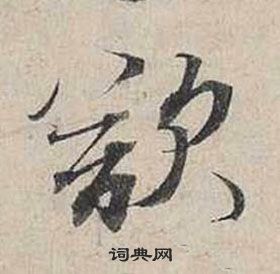 欲
词典网